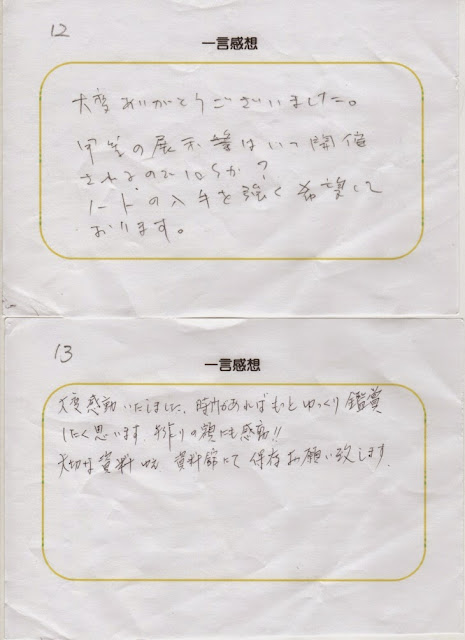 12
一言感想
大変ありがとうございました。
の展示等はいつ開催
されるのでしょうか?
ノートの入手を強く希望して
おります。
13
一言感想
大変感動いたしました。時間があればもっとゆっくり鑑賞
したく思います。手作りの額にも感動!!
大切な資料ゆえ 資料館にて 保存お願い致します。